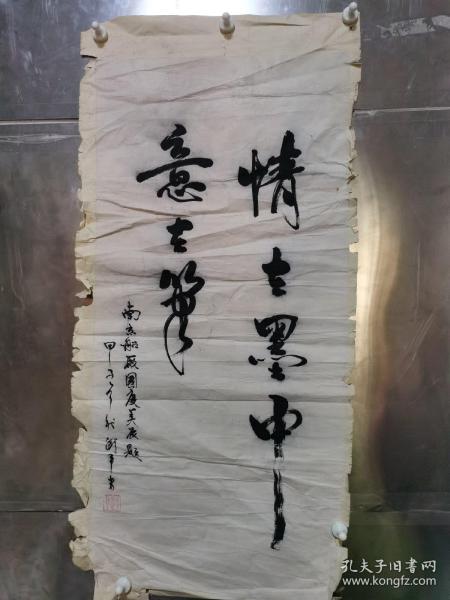 情在墨中
意在笔
南京船厰國庆美展題
甲子年秋
孔夫子旧书网
www.kongfz.com